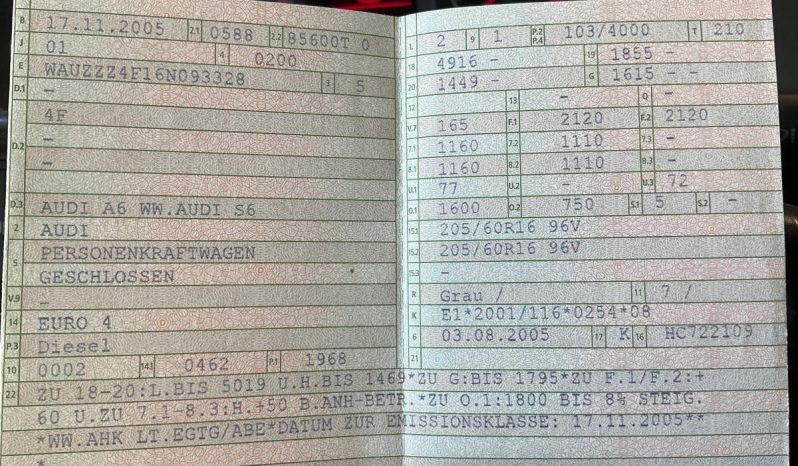 B 17.11.2005 2.1 0588 2.2 85600T 0
J 01 4 0200
E WAUZZZ4F16N093328 3 5
D.1 -
D.2 4F
-
-
D.3 AUDI A6 WW.AUDI S6
2 AUDI
5 PERSONENKRAFTWAGEN
GESCHLOSSEN
V.9 -
14 EURO 4
P.3 Diesel
10 0002 14.1 0462 P.1 1968
L 2 9 1 P.2 P.4 103/4000 T 210
18 4916 - 19 1855 -
20 1449 - G 1615 - -
12 13 - Q -
V.7 165 F.1 2120 F.2 2120
7.1 1160 7.2 1110 7.3 -
8.1 1160 8.2 1110 8.3 -
U.1 77 U.2 - U.3 72
O.1 1600 O.2 750 S.1 5 S.2 -
15.1 205/60R16 96V
15.2 205/60R16 96V
15.3 -
R Grau / 11 7 /
K E1*2001/116*0254*08
6 03.08.2005 17 K 16 HC722109
21
22 ZU 18-20:L.BIS 5019 U.H.BIS 1469*ZU G:BIS 1795*ZU F.1/F.2:+
60 U.ZU 7.1-8.3:H.+50 B.ANH-BETR.*ZU O.1:1800 BIS 8% STEIG.
*WW.AHK LT.EGTG/ABE*DATUM ZUR EMISSIONSKLASSE: 17.11.2005**
*